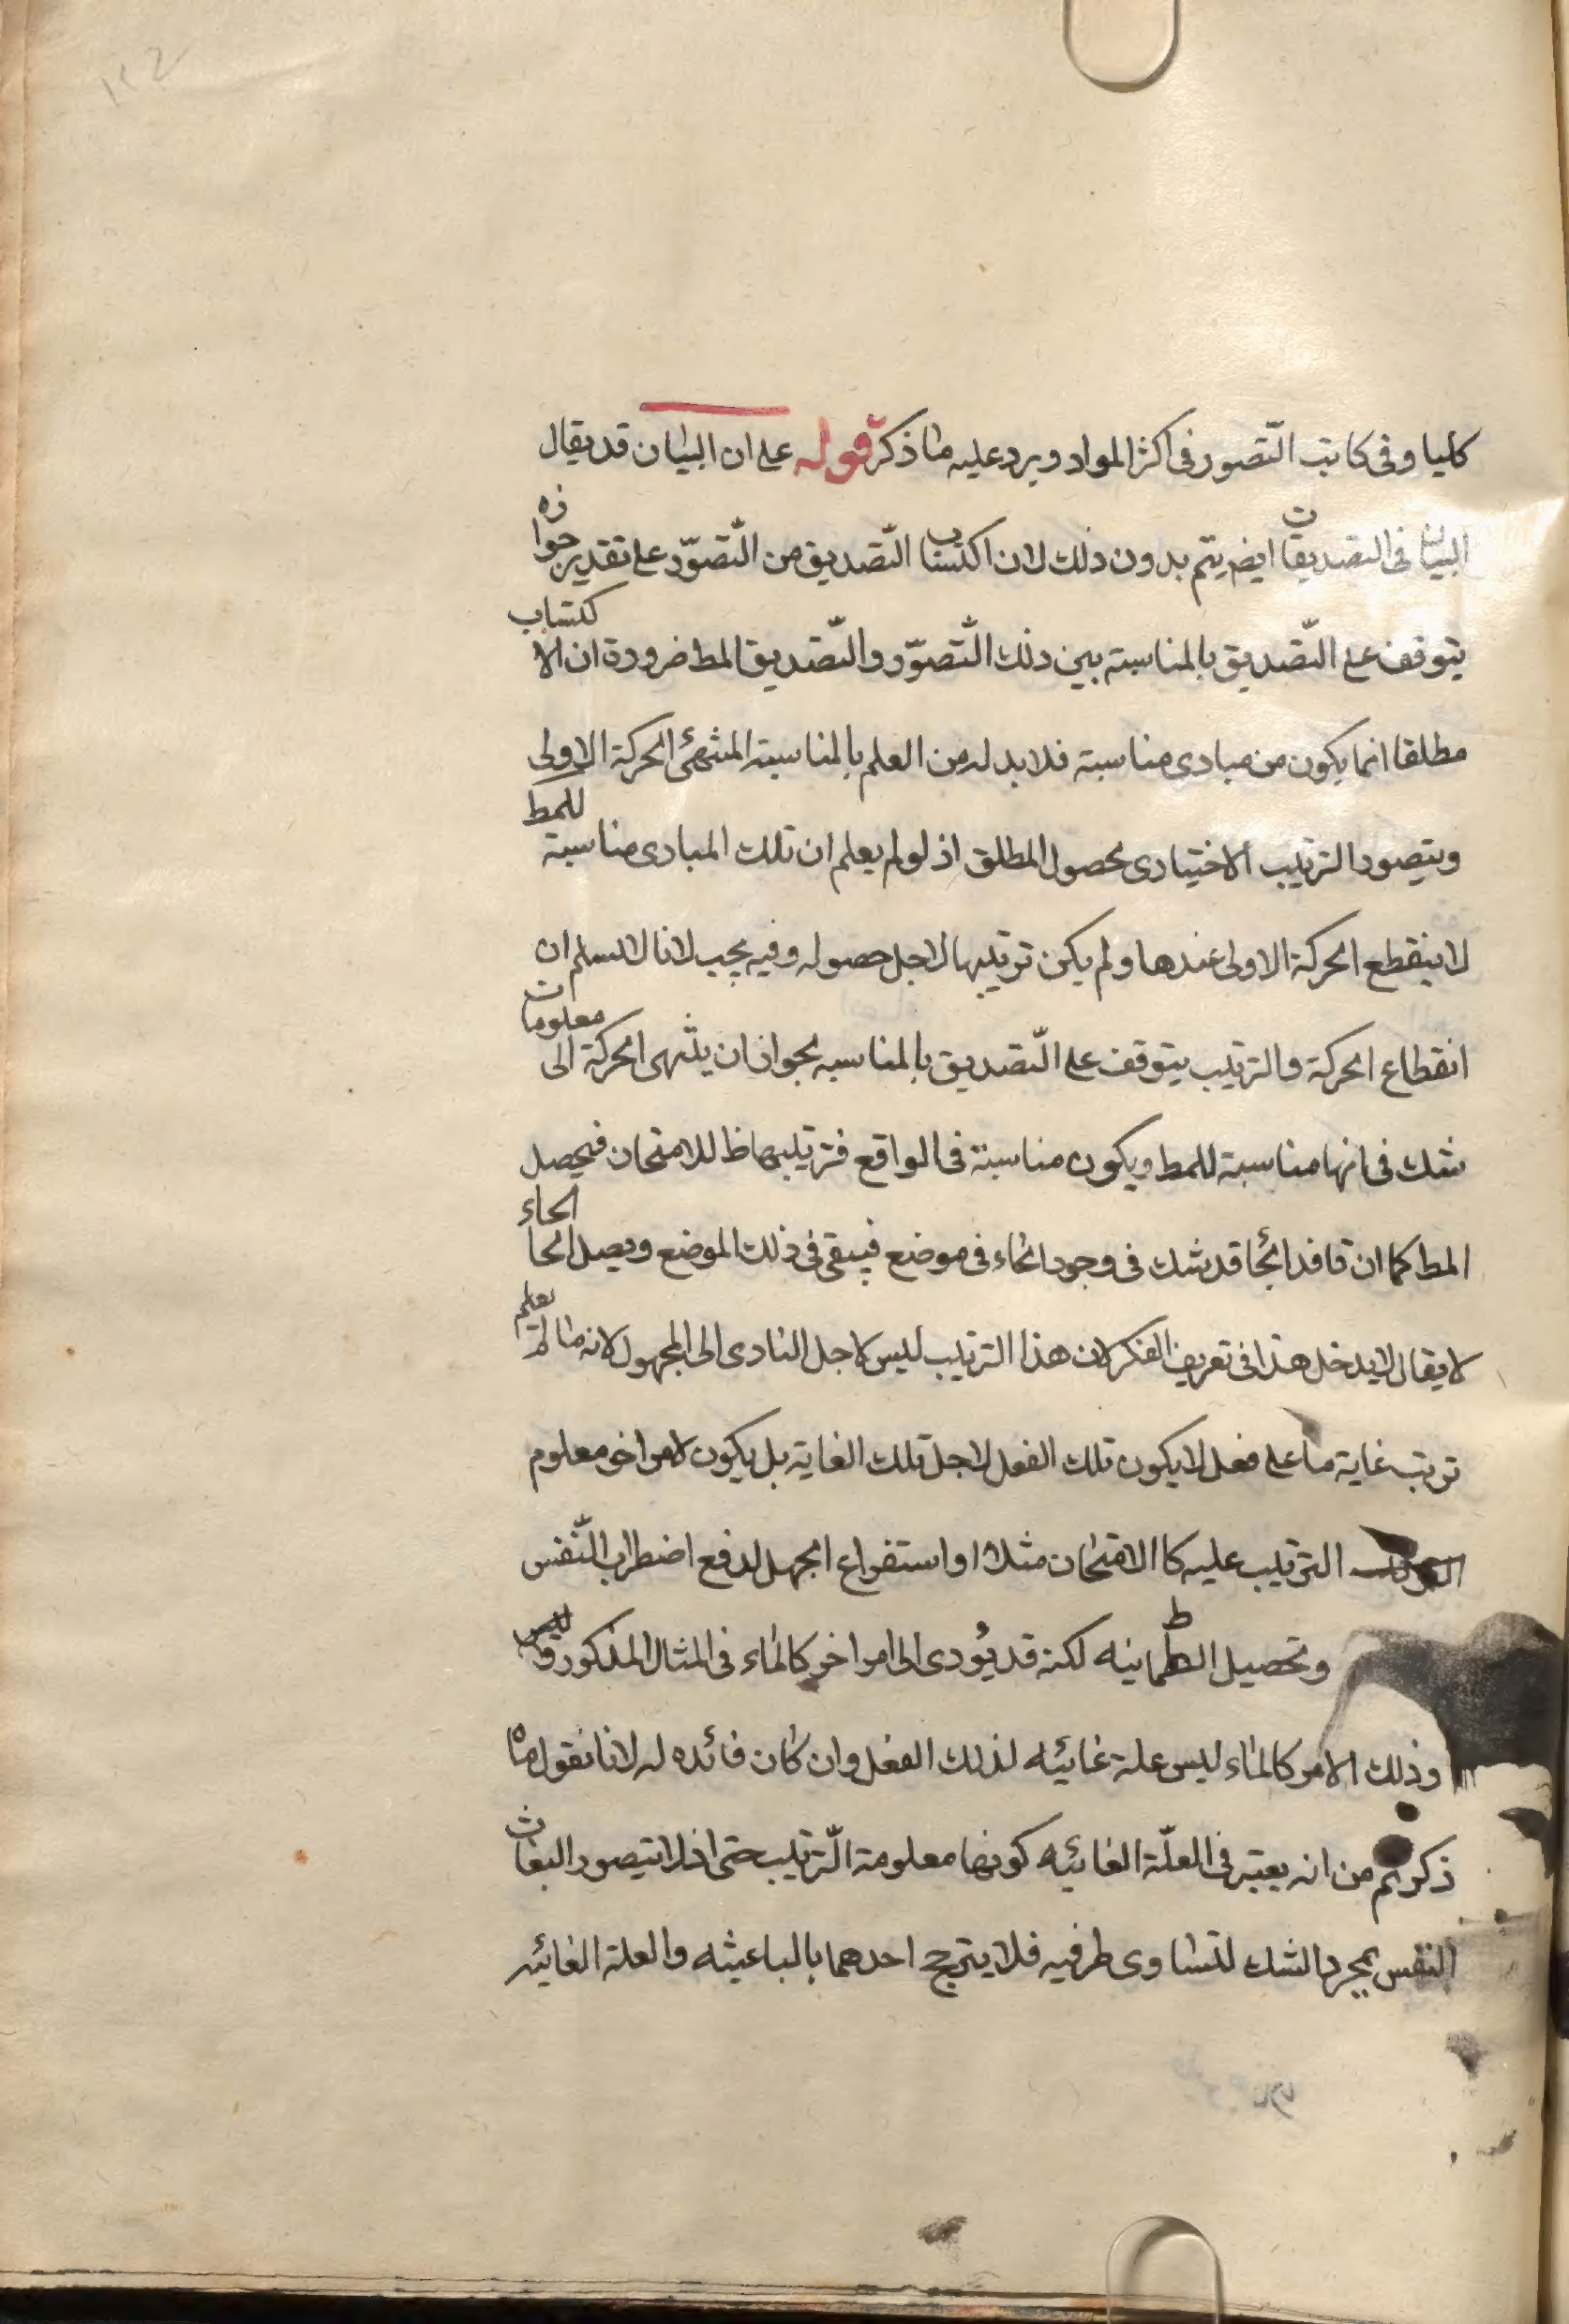 كليا وفى كاتب التّصور فى اكثر المواد ويرد عليه ما ذكر قوله على ان البيان قد يقال
البيان فى التصديقات ايضا يتم بدون ذلك لان اكتساب التّصديق من التّصوّر على تقدير جوازه
يتوقف على التّصديق بالمناسبة بين ذلك التّصوّر والتّصديق المط ضرورة ان الاكتساب
مطلقا انما يكون من مبادى مناسبة فلا بد له من العلم بالمناسبة الحركة الاولى
ويتصور الترتيب الاختيارى لحصول المطلق اذ لو لم يعلم ان تلك المبادى مناسبة للمط
لا ينقطع الحركة الاولى عندها ولم يكن ترتيبها لاجل حصوله وفيه لانا لا نسلم ان
انقطاع الحركة والترتيب يتوقف على التّصديق بالمناسبه لجواز ان ينتهى الحركة الى معلومات
شك فى انها مناسبة للمط ويكون مناسبة فى الواقع فترتيبها ظ للامتحان فيحصل
المط كما ان قد شك فى وجود الماء فى موضع فى ذلك الموضع ويصل الماء
لا يقال لا يدخل هذا فى تعريف الفكر لان هذا الترتيب ليس لاجل التادى الى المجهول لانه ما لم يعلم
ترتب غاية ما على فعل لا يكون تلك الفعل لاجل تلك الغاية بل يكون لامر اخر معلوم
الترتيب عليه كالامتحان مثلا او استفراغ الجهد لدفع اضطراب النّفس
وتحصيل الطمانينه لكنه قد يؤدى الى امر اخر كالماء فى المثال المذكور وليس
وذلك الامر كالماء ليس علة غائيه لذلك الفعل وان كان فائده له لانا نقول ما
ذكرتم من انه يعتبر فى العلّة الغائيه كونها معلومة التّرتيب حتى اذ لا يتصور
النفس بمجرد الشك لتساوى طرفيه فلا يترجح احدهما بالباعيثه والعلة الغائيه